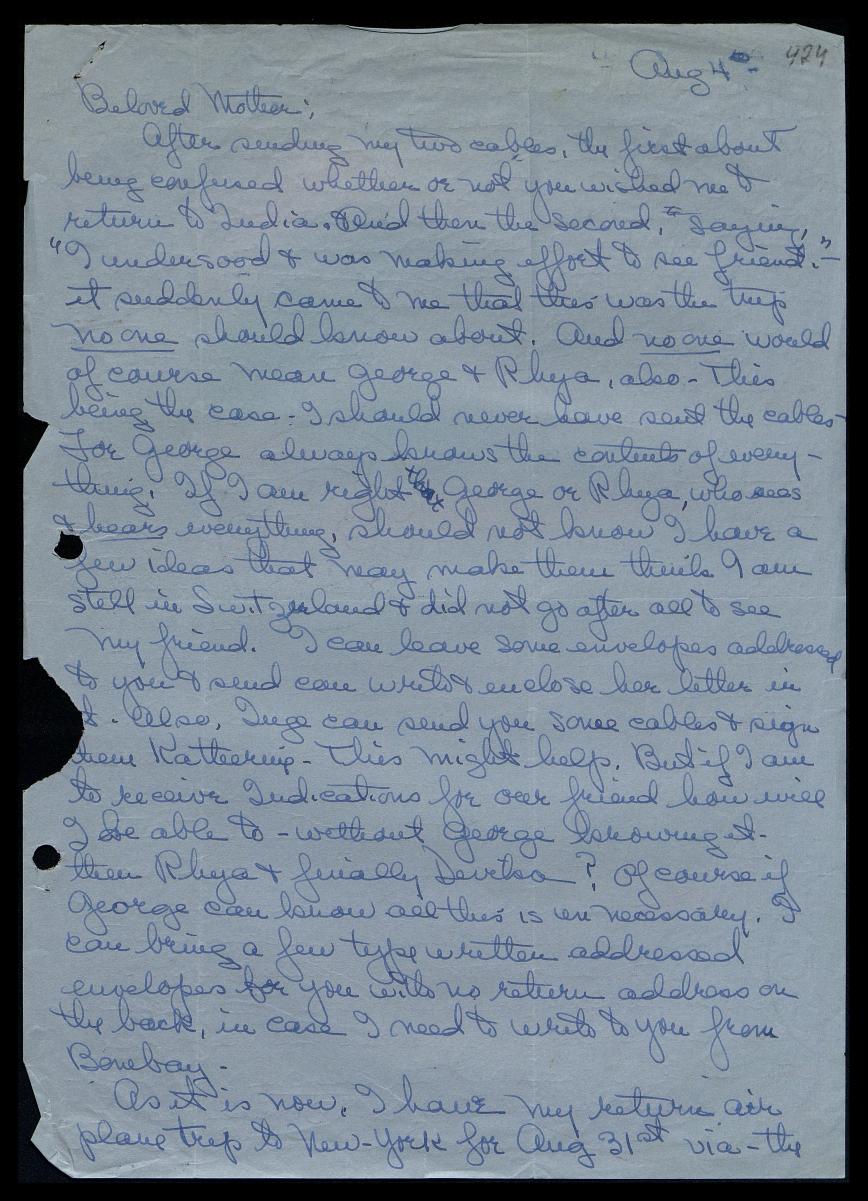 Aug 4th - 424
Beloved Mother;
After sending my two cables, the first about
being confused whether or not you wished me to
return to India. And then the second, saying,
"I understood & was making effort to see friend." -
it suddenly came to me that this was the trip
no one should know about. And no one would
of course mean George & Rhya, also - This
being the case - I should never have sent the cables -
For George always knows the contents of every-
thing. If I am right that George or Rhya, who sees
& hears everything, should not know I have a
few ideas that may make them think I am
still in Switzerland & did not go after all to see
my friend. I can leave some envelopes addressed
to you & send can write & enclose her letter in
it. Also, Inge can send you some cables & sign
them Katherine - This might help. But if I am
to receive Indications for our friend how will
I be able to - without George knowing it -
then Rhya & finally Devika? Of course if
George can know all this is unnecessary. I
can bring a few type written addressed
envelopes for you with no return address on
the back, in case I need to write to you from
Bombay -
As it is now, I have my return air
plane trip to New-York for Aug 31st via - the